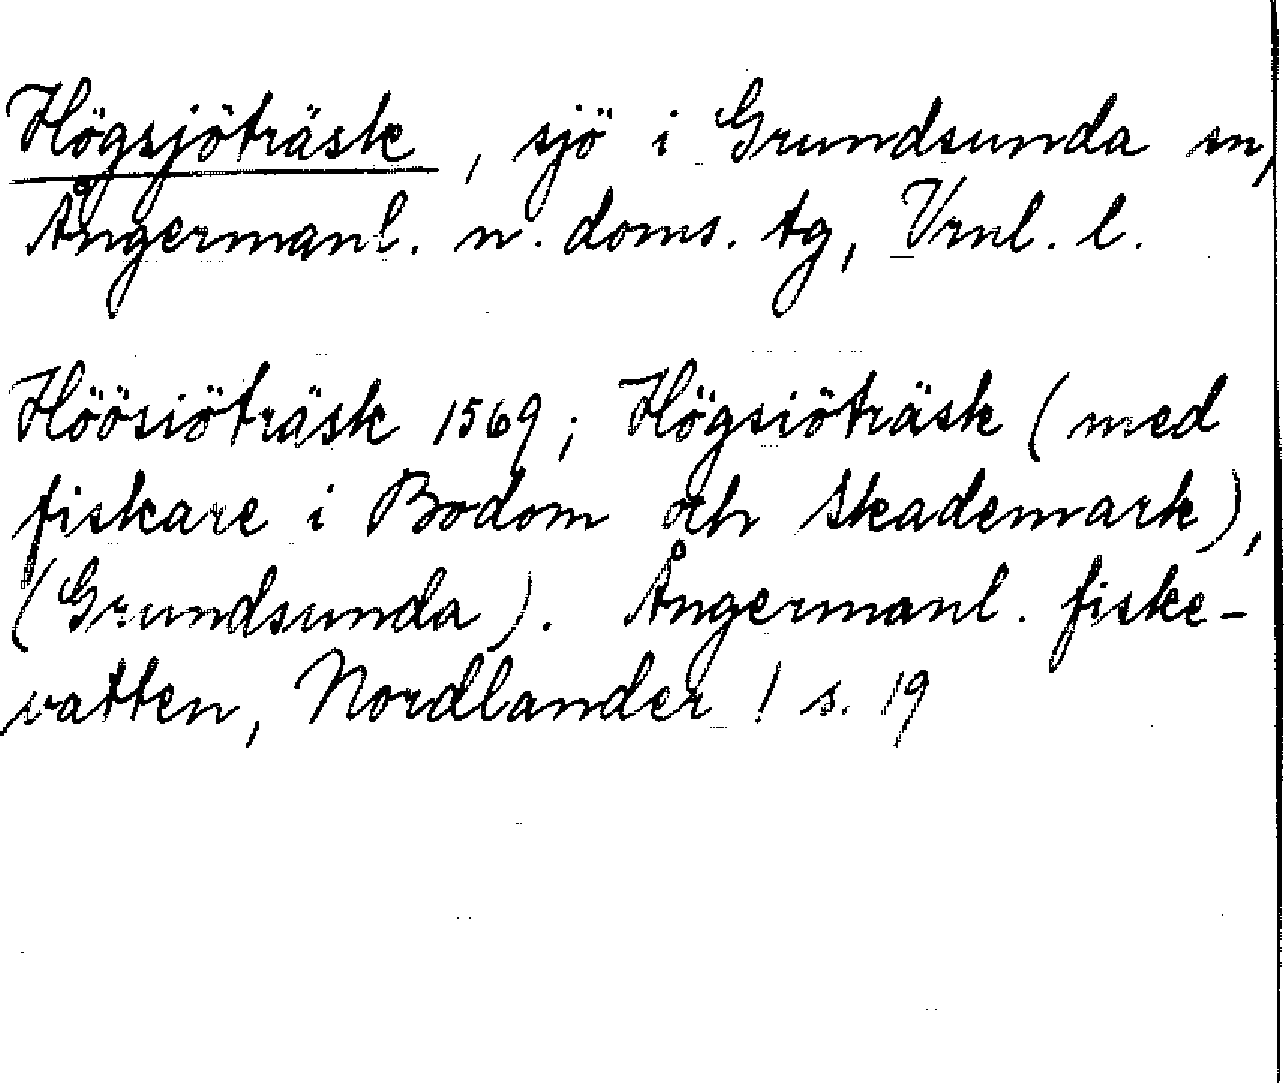 Högsjöträsk, sjö i Grundsunda sn,
Ångermanl. n. doms. tg, Vrnl. l.
Höösiöträsk 1569; Högsiöträsk (med
fiskare i Bodom och Skademark),
(Grundsunda). Ångermanl. fiske-
vatten, Nordlander ! s. 19